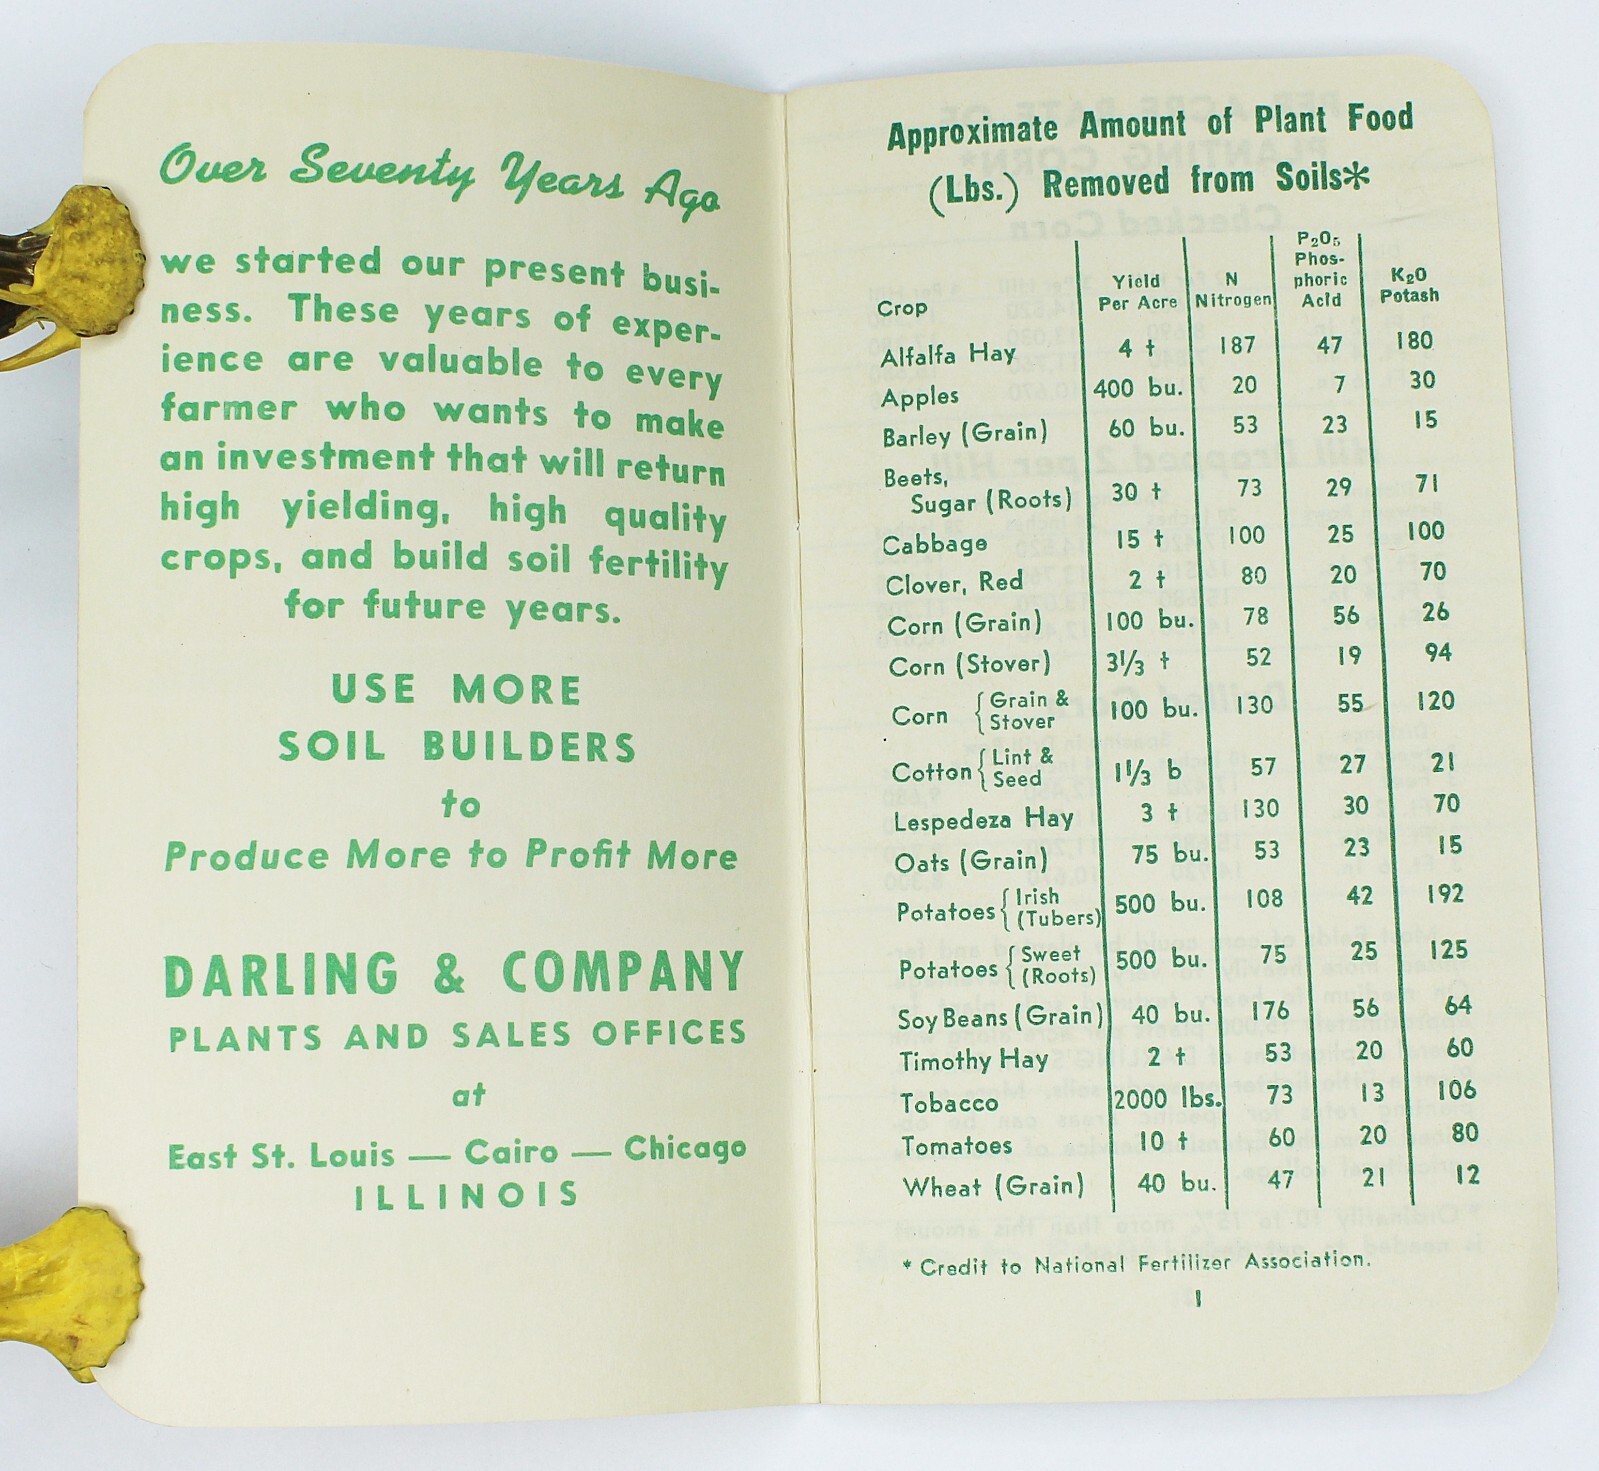 Over Seventy Years Ago
we started our present busi-
ness. These years of exper-
ience are valuable to every
farmer who wants to make
an investment that will return
high yielding, high quality
crops, and build soil fertility
for future years.
USE MORE
SOIL BUILDERS
to
Produce More to Profit More
DARLING & COMPANY
PLANTS AND SALES OFFICES
at
East St. Louis — Cairo — Chicago
ILLINOIS
Approximate Amount of Plant Food
(Lbs.) Removed from Soils*
Crop Yield Per Acre N Nitrogen P₂O₅ Phos-phoric Acid K₂O Potash
Alfalfa Hay 4 t 187 47 180
Apples 400 bu. 20 7 30
Barley (Grain) 60 bu. 53 23 15
Beets,
Sugar (Roots) 30 t 73 29 71
Cabbage 15 t 100 25 100
Clover, Red 2 t 80 20 70
Corn (Grain) 100 bu. 78 56 26
Corn (Stover) 3⅓ t 52 19 94
Corn { Grain & Stover 100 bu. 130 55 120
Cotton { Lint & Seed 1⅓ b 57 27 21
Lespedeza Hay 3 t 130 30 70
Oats (Grain) 75 bu. 53 23 15
Potatoes { Irish (Tubers) 500 bu. 108 42 192
Potatoes { Sweet (Roots) 500 bu. 75 25 125
Soy Beans (Grain) 40 bu. 176 56 64
Timothy Hay 2 t 53 20 60
Tobacco 2000 lbs. 73 13 106
Tomatoes 10 t 60 20 80
Wheat (Grain) 40 bu. 47 21 12
* Credit to National Fertilizer Association.
1